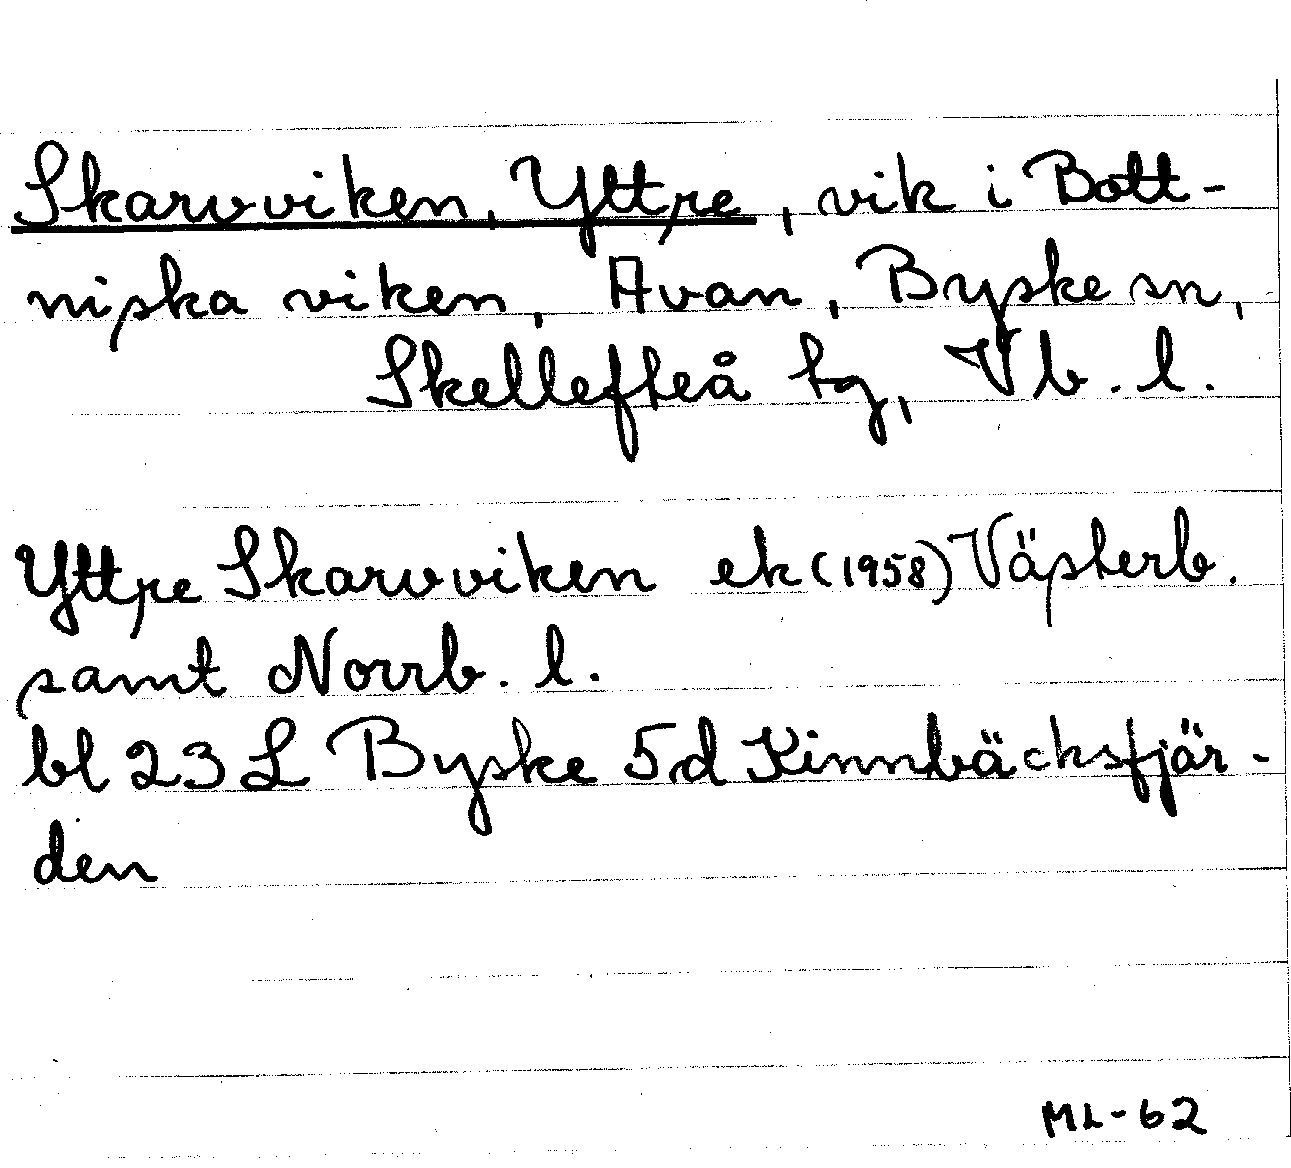 Skarvviken, Yttre, vik i Bott-
niska viken, Avan, Byske sn,
Skellefteå tg, Vb. l.
Yttre Skarvviken ek (1958) Västerb.
samt Norrb. l.
bl 23 L Byske 5d Kinnbäcksfjär-
den
ML-62